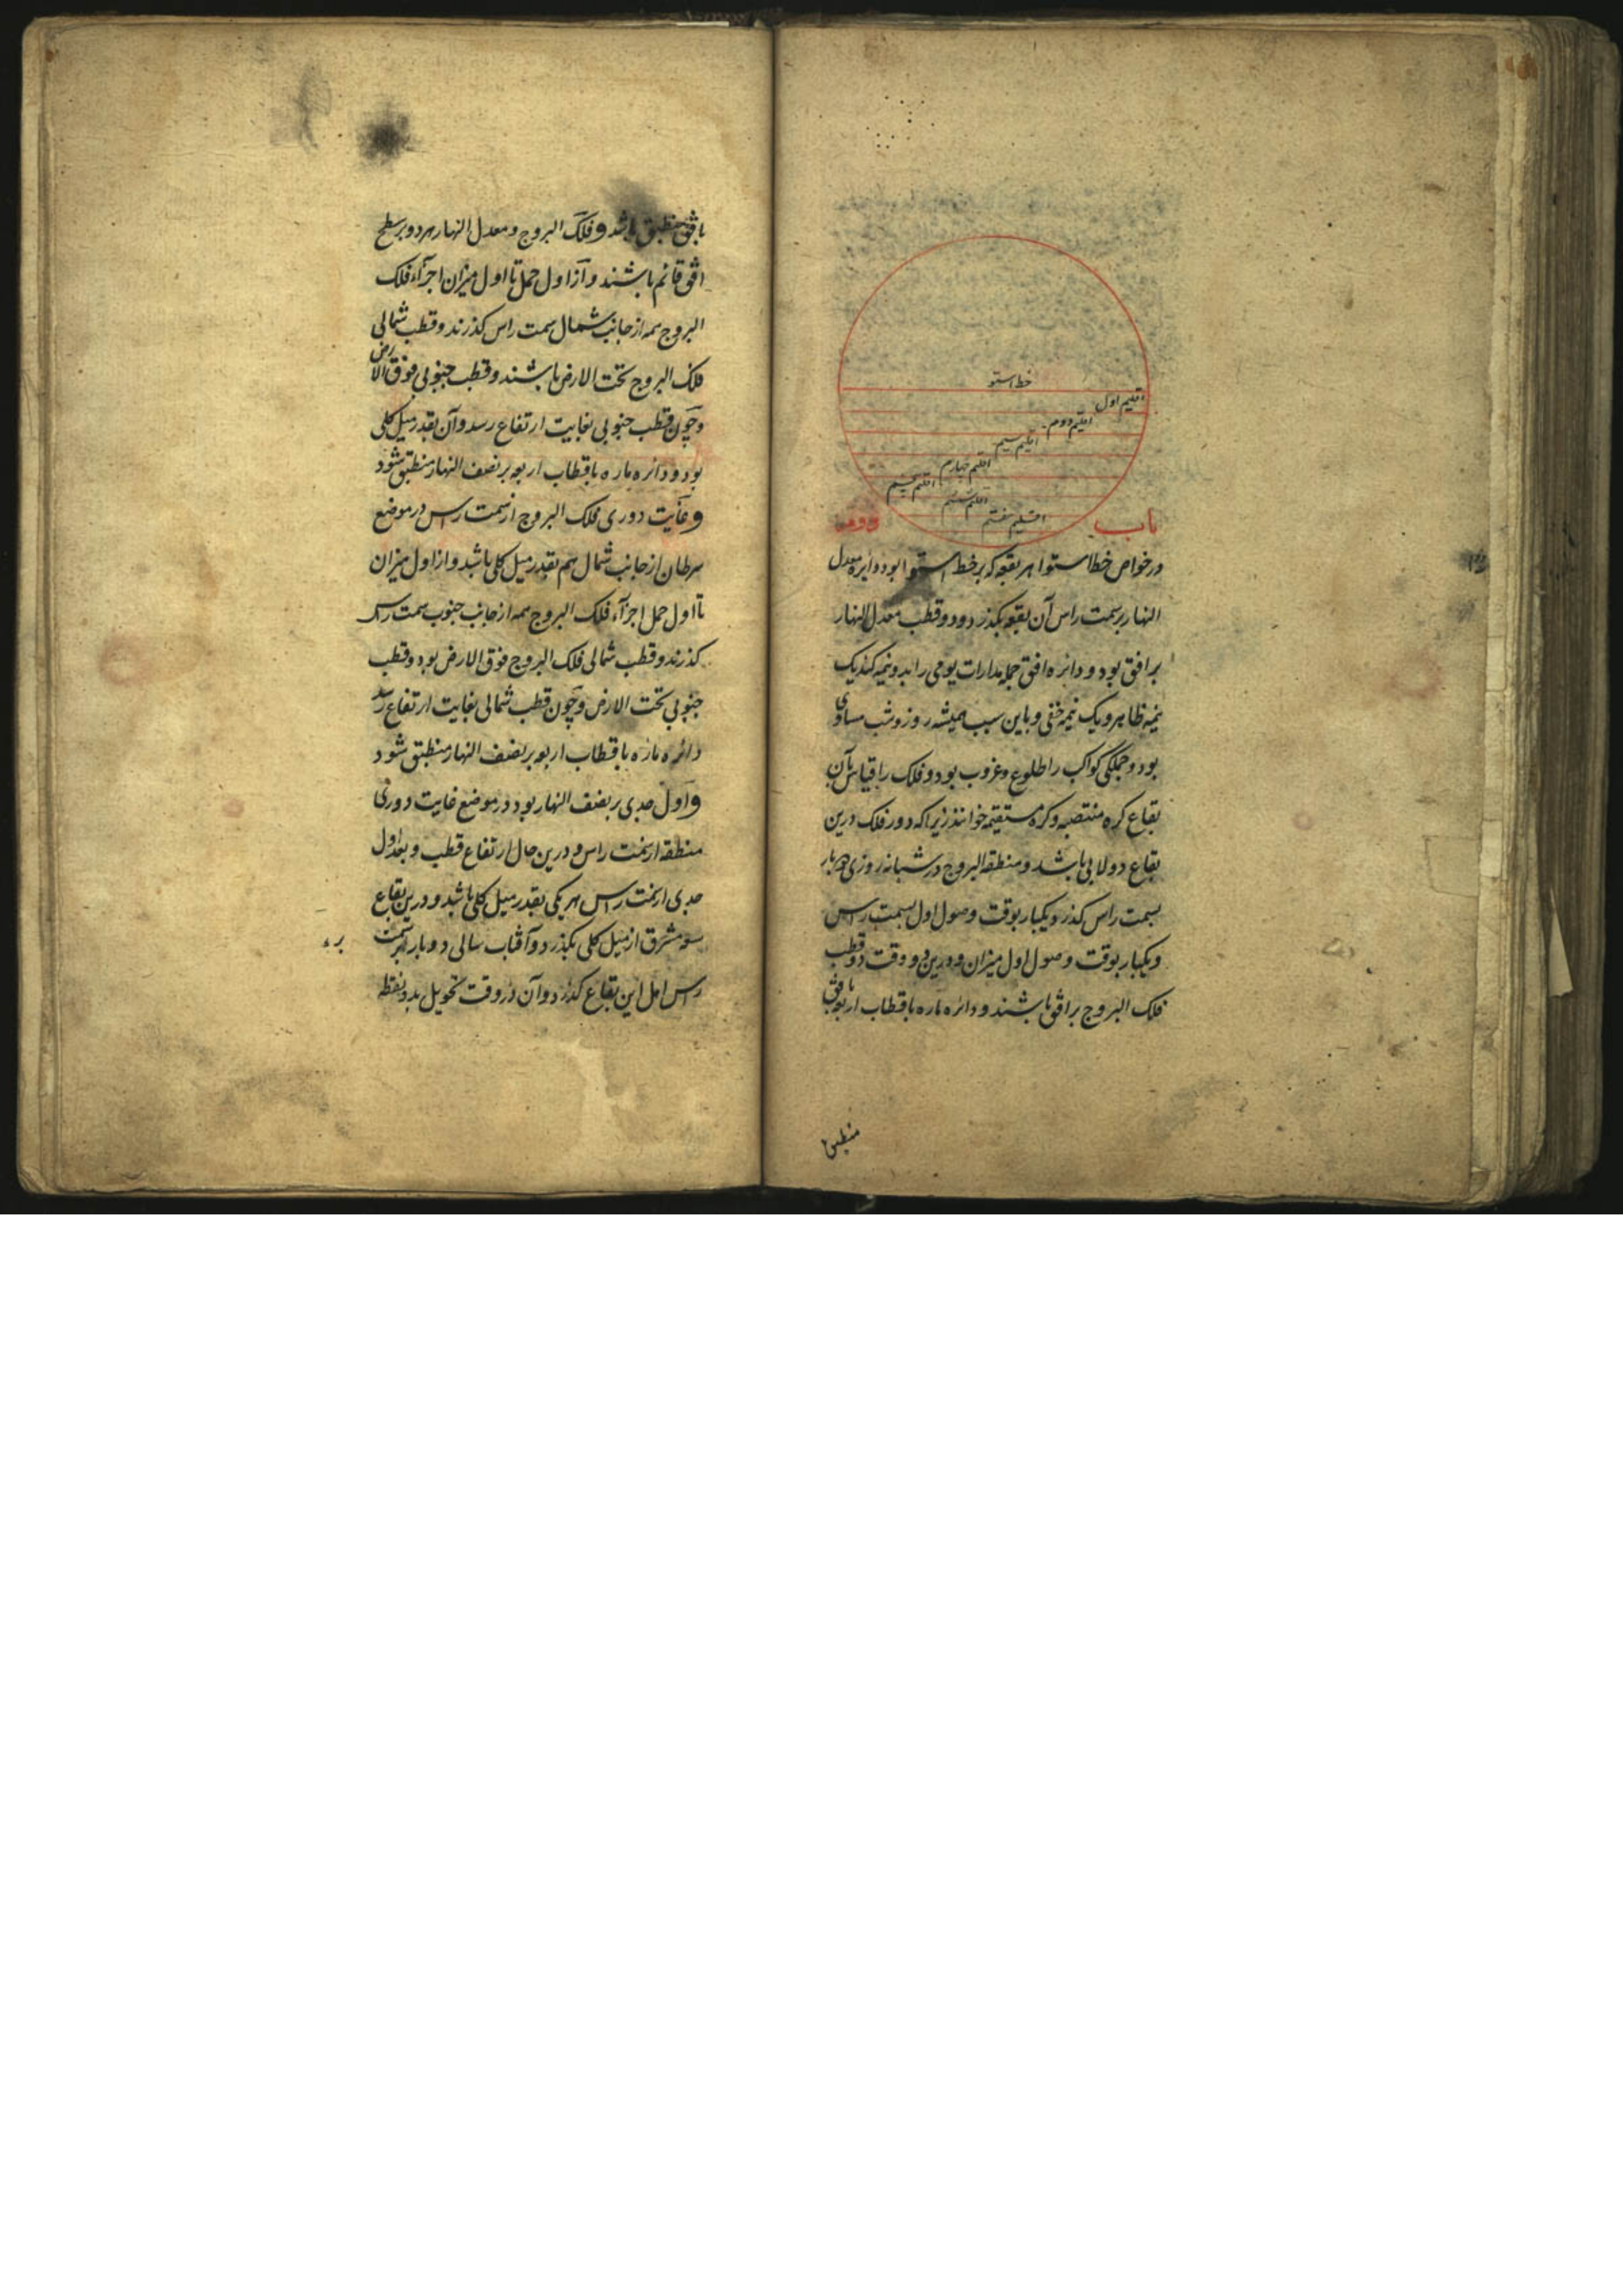 خط استوا
اقلیم اول
اقلیم دوم
اقلیم سیم
اقلیم چهارم
اقلیم پنجم
اقلیم ششم
اقلیم هفتم
باب دوم
در خواص خط استوا هر بقعه که بر خط استوا بود دایره معدل
النهار بر سمت راس آن بقعه بگذرد و دو قطب معدل النهار
بر افق بود و دایره افق جمله مدارات یومی را بدو نیمه کند یک
نیمه ظاهر و یک نیمه خفی و باین سبب همیشه روز و شب مساوی
بود و جملگی کواکب را طلوع و غروب بود و فلک را قیاس بآن
بقاع کره منتصبه و کره مستقیمه خوانند زیرا که دور فلک درین
بقاع دولابی باشد و منطقه البروج در شبانه روزی دو بار
بسمت راس گذرد یکبار بوقت وصول اول بسمت راس
و یکبار بوقت وصول اول میزان و درین دو وقت دو قطب
فلک البروج بر افق باشند و دایره ماره باقطاب اربعه بافق
منطبق
بافق منطبق باشد و فلک البروج و معدل النهار هر دو بر سطح
افق قائم باشند و از اول حمل تا اول میزان اجزآء فلک
البروج همه از جانب شمال سمت راس گذرند و قطب شمالی
فلک البروج تحت الارض باشند و قطب جنوبی فوق الارض
و چون قطب جنوبی بغایت ارتفاع رسد و آن بقدر میل کلی
بود و دائره ماره باقطاب اربعه بر نصف النهار منطبق شود
و غایت دوری فلک البروج از سمت راس در موضع
سرطان از جانب شمال هم بقدر میل کلی باشد و از اول میزان
تا اول حمل اجزآء فلک البروج همه از جانب جنوب سمت راس
گذرند و قطب شمالی فلک البروج فوق الارض بود و قطب
جنوبی تحت الارض و چون قطب شمالی بغایت ارتفاع رسد
دائره ماره باقطاب اربعه بر نصف النهار منطبق شود
و اول جدی بر نصف النهار بود در موضع غایت دوری
منطقه از سمت راس و درین حال ارتفاع قطب و بعد اول
جدی از سمت راس هر یکی بقدر میل کلی باشد و درین بقاع
سعه مشرق از میل کلی بگذرد و آفتاب سالی دو بار بر سمت
راس اهل این بقاع گذرد و آن در وقت تحویل بدو نقطه